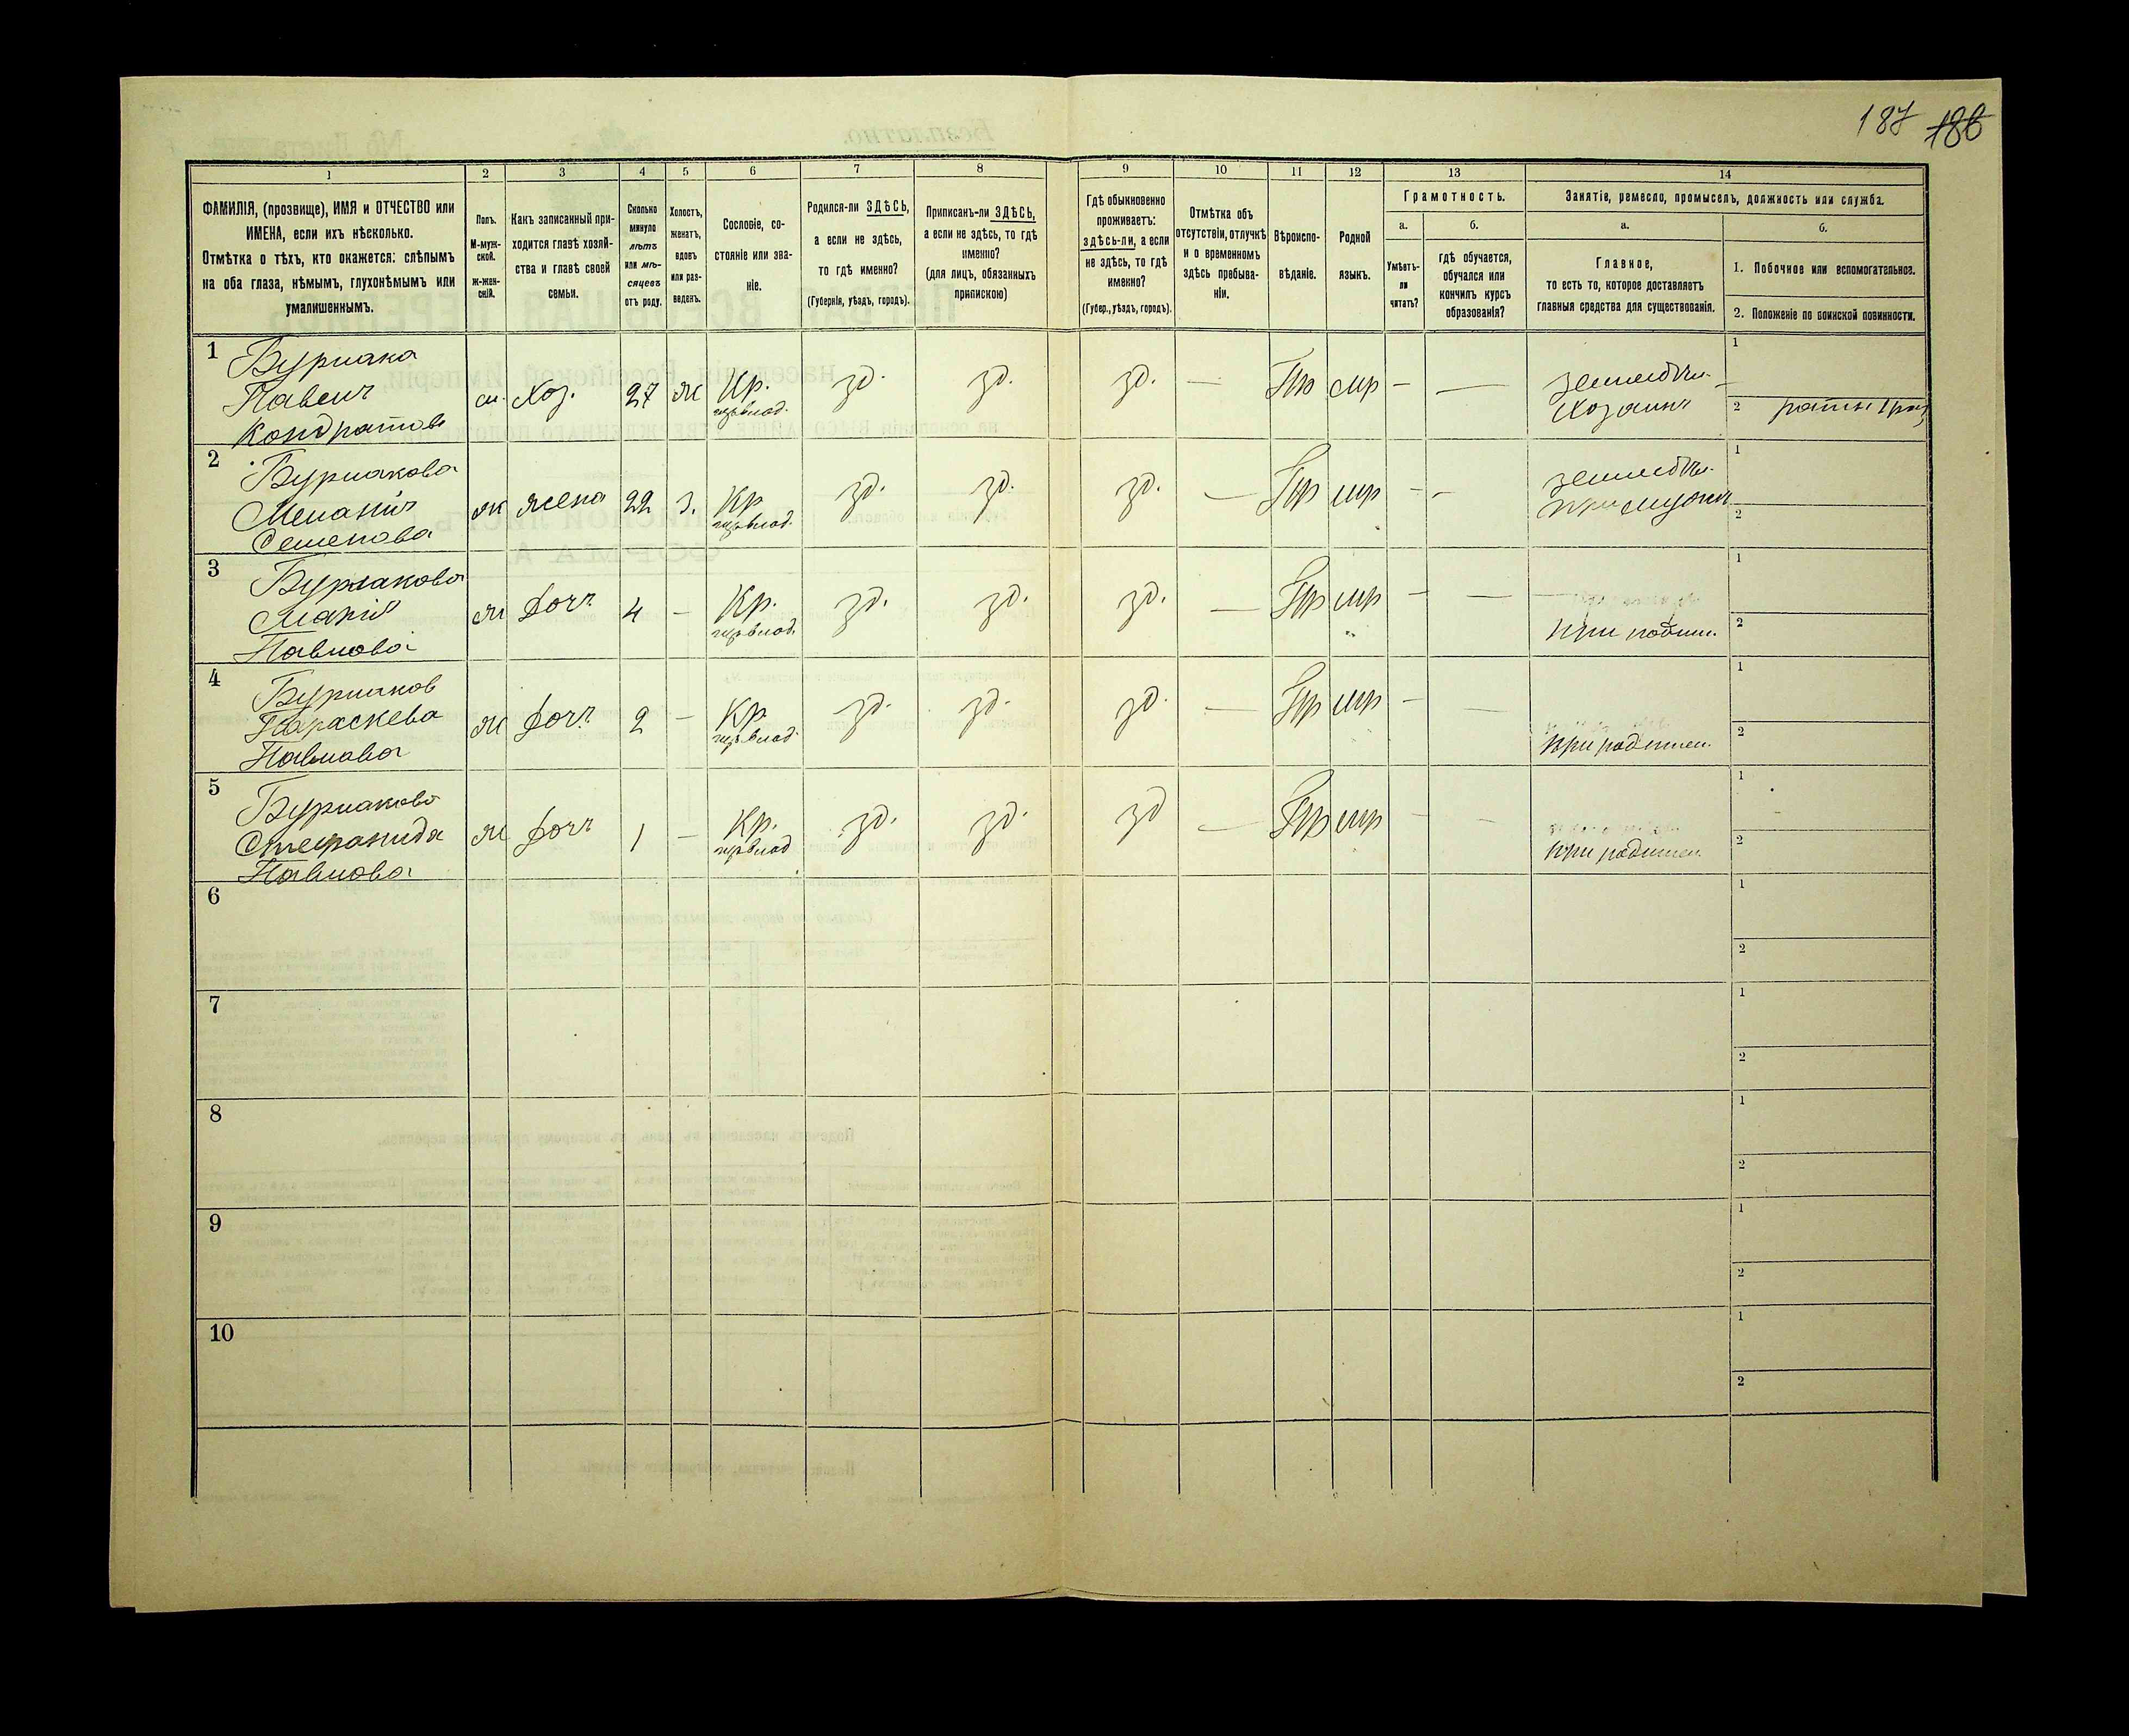 187 186
1
2
3
4
5
6
7
8
9
10
11
12
13
14
ФАМИЛІЯ, (прозвище), ИМЯ и ОТЧЕСТВО или
ИМЕНА, если ихъ нѣсколько.
Отмѣтка о тѣхъ, кто окажется: слѣпымъ
на оба глаза, нѣмымъ, глухонѣмымъ или
умалишеннымъ.
Полъ.
М-муж-
ской.
Ж-жен-
скій.
Какъ записанный при-
ходится главѣ хозяй-
ства и главѣ своей
семьи.
Сколько
минуло
лѣтъ
или мѣ-
сяцевъ
отъ роду.
Холостъ,
женатъ,
вдовъ
или раз-
веденъ.
Сословіе, со-
стояніе или зва-
ніе.
Родился-ли ЗДѢСЬ,
а если не здѣсь,
то гдѣ именно?
(Губернія, уѣздъ, городъ).
Приписанъ-ли ЗДѢСЬ,
а если не здѣсь, то гдѣ
именно?
(для лицъ, обязанныхъ
припискою)
Гдѣ обыкновенно
проживаетъ:
здѣсь-ли, а если
не здѣсь, то гдѣ
именно?
(Губер., уѣздъ, городъ).
Отмѣтка объ
отсутствіи, отлучкѣ
и о временномъ
здѣсь пребыва-
ніи.
Вѣроиспо-
вѣданіе.
Родной
языкъ.
Грамотность.
а.
Умѣетъ-
ли
читать?
б.
гдѣ обучается,
обучался или
кончилъ курсъ
образованія?
Занятіе, ремесло, промыселъ, должность или служба.
а.
Главное,
то есть то, которое доставляетъ
главныя средства для существованія.
б.
1. Побочное или вспомогательное.
2. Положеніе по воинской повинности.
1 Бурлака
Павелъ
Кондратовъ
м. Хоз. 27 ж Кр. зд. зд. зд. — Пр мр — —
земледѣл.
Хозяинъ
1
2
2 Бурлакова
Меланія
Семенова
ж жена 22 з. Кр зд. зд. зд. — Пр мр - -
земледѣл.
1
2
3 Бурлакова
Марія
Павлова
ж дочь 4 — Кр. зд. зд. зд. — Пр мр - —
При родит.
1
2
4 Бурлаков
Параскева
Павлова
ж дочь 2 — Кр зд. зд. зд. — Пр мр - —
При родител.
1
2
5 Бурлакова
Стефанида
Павлова
ж дочь 1 — Кр. зд. зд. зд — Пр мр - -
При родител.
1
2
6
1
2
7
1
2
8
1
2
9
1
2
10
1
2